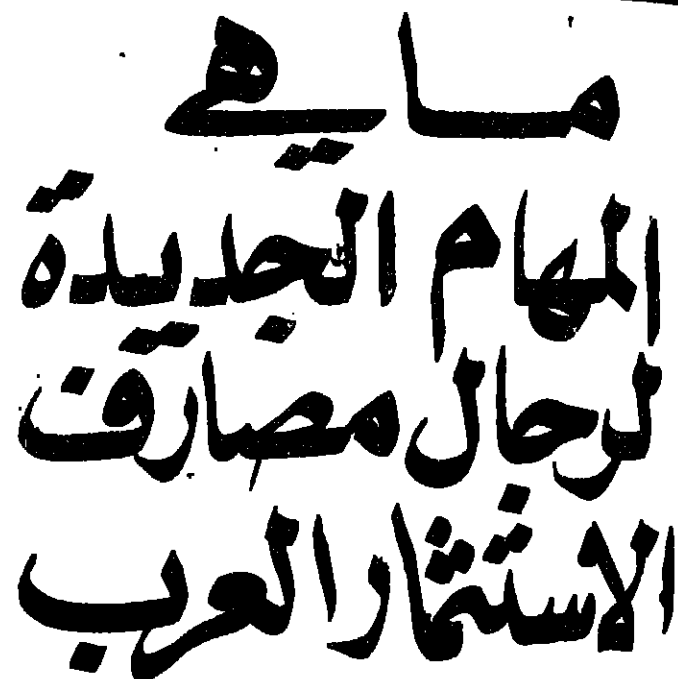 ما هي
المهام الجديدة
لرجال مصارف
الاستثمار العرب